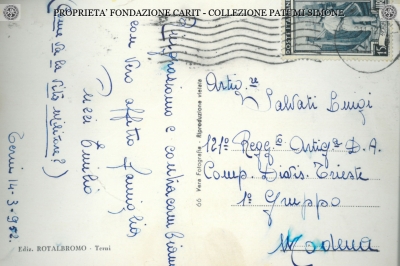 PROPRIETA' FONDAZIONE CARIT - COLLEZIONE PATUMI SIMONE
Ringraziamo e contraccambiamo
con vivo affetto famiglia
Ricci Emilio
(Come va la vita militare?)
Terni 14-3-952.
Ediz. ROTALBROMO - Terni
66 Vera Fotografia - Riproduzione vietata
Artig.re
Salvati Luigi
121° Regg. Artig. D.A.
Comp. Distr. Trieste
1° Gruppo
Modena